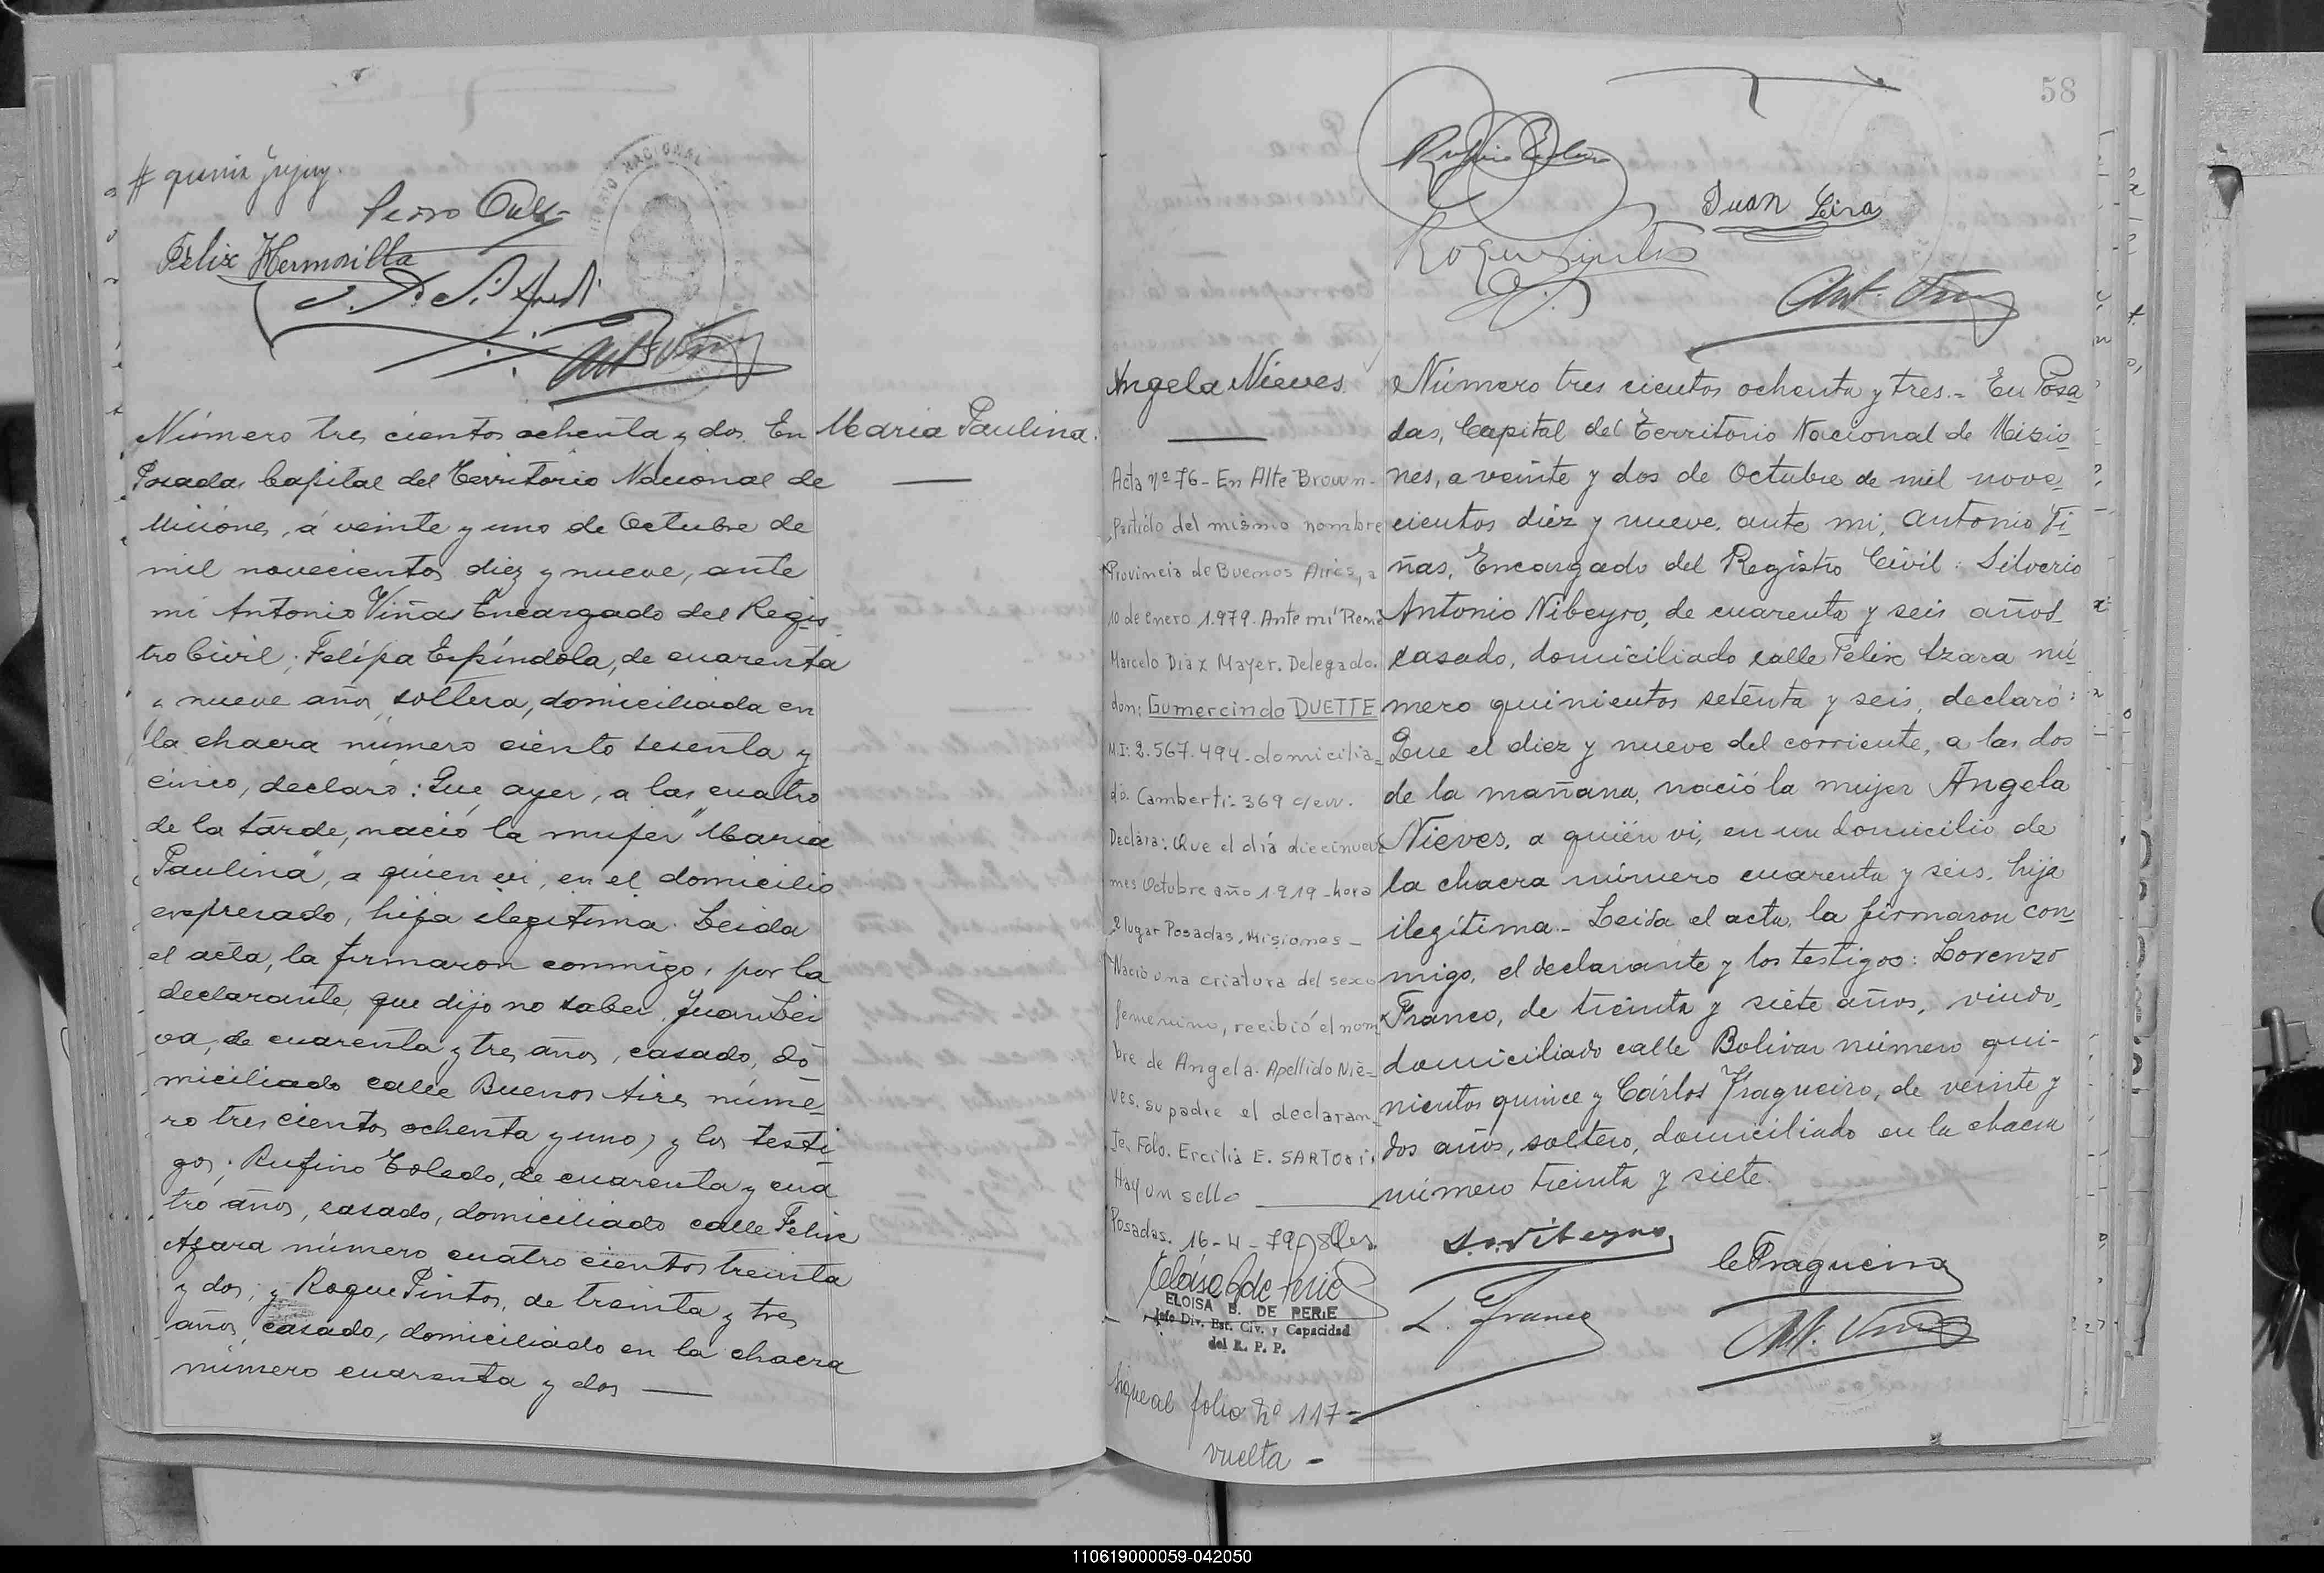 Pedro
Felix Hermosilla
Ant. Viñas
Número tres cientos ochenta y dos. En
Posadas Capital del Territorio Nacional de
Misiones, á veinte y uno de Octubre de
mil novecientos diez y nueve, ante
mi Antonio Viñas Encargado del Regis
tro Civil; Felípa Espíndola, de cuarenta
y nueve años, soltera, domiciliada en
la chacra número ciento sesenta y
cinco, declaró: Que, ayer, a las cuatro
de la tarde, nació la mujer "Maria
Paulina", a quien vi, en el domicilio
expresado, hija ilegitima. Leida
el acta, la firmaron conmigo, por la
declarante, que dijo no saber, Juan Lei
va, de cuarenta y tres años, casado, do
miciliado calle Buenos Aires núme
ro tres cientos ochenta y uno, y los testi
gos: Rufino Toledo, de cuarenta y cua
tro años, casado, domiciliado calle Felix
Azara número cuatro cientos treinta
y dos; y Roque Pintos, de treinta y tres
años, casado, domiciliado en la chacra
número cuarenta y dos
Maria Paulina.
58
Rufino Toledo
Juan Leiva
Roque Pintos
Ant. Viñas
Angela Nieves.
Acta nº 76 - En Alte Brown -
Partido del mismo nombre
Provincia de Buenos Aires, a
10 de enero 1.979. Ante mi René
Marcelo Diaz Mayer. Delegado.
don: Gumercindo DUETTE
M.I: 2.567.494 - domicilia-
do. Camberti - 369
Declara: Que el día diecinueve
mes Octubre año 1919 - hora
2 lugar Posadas, Misiones -
Nació una criatura del sexo
femenino, recibió el nom
bre de Angela. Apellido Nie-
ves. su padre el declaran
te. Fdo. Ercilia E. SARTORI.
Hay un sello
Posadas. 16-4-79
ELOISA B. DE PERIE
Jefe Div. Est. Civ. y Capacidad
del R. P. P.
Sigue al folio Nº 117 -
vuelta -
Número tres cientos ochenta y tres. - En Posa
das, Capital del Territorio Nacional de Misio
nes, a veinte y dos de Octubre de mil nove
cientos diez y nueve, ante mi, Antonio Vi
ñas, Encargado del Registro Civil: Silverio
Antonio Nibeyro, de cuarenta y seis años
casado, domiciliado calle Felix Azara nú
mero quinientos setenta y seis, declaró:
Que el diez y nueve del corriente, a las dos
de la mañana, nació la mujer Angela
Nieves, a quién vi, en un domicilio de
la chacra número cuarenta y seis, hija
ilegítima. - Leida el acta, la firmaron con
migo, el declarante y los testigos: Lorenzo
Franco, de treinta y siete años, viudo,
domiciliado calle Bolivar número qui-
nientos quince y Cárlos Fragueiro, de veinte y
dos años, soltero, domiciliado en la chacra
número treinta y siete.
C Fragueiro
L. Franco
Ant. Viñas
110619000059-042050